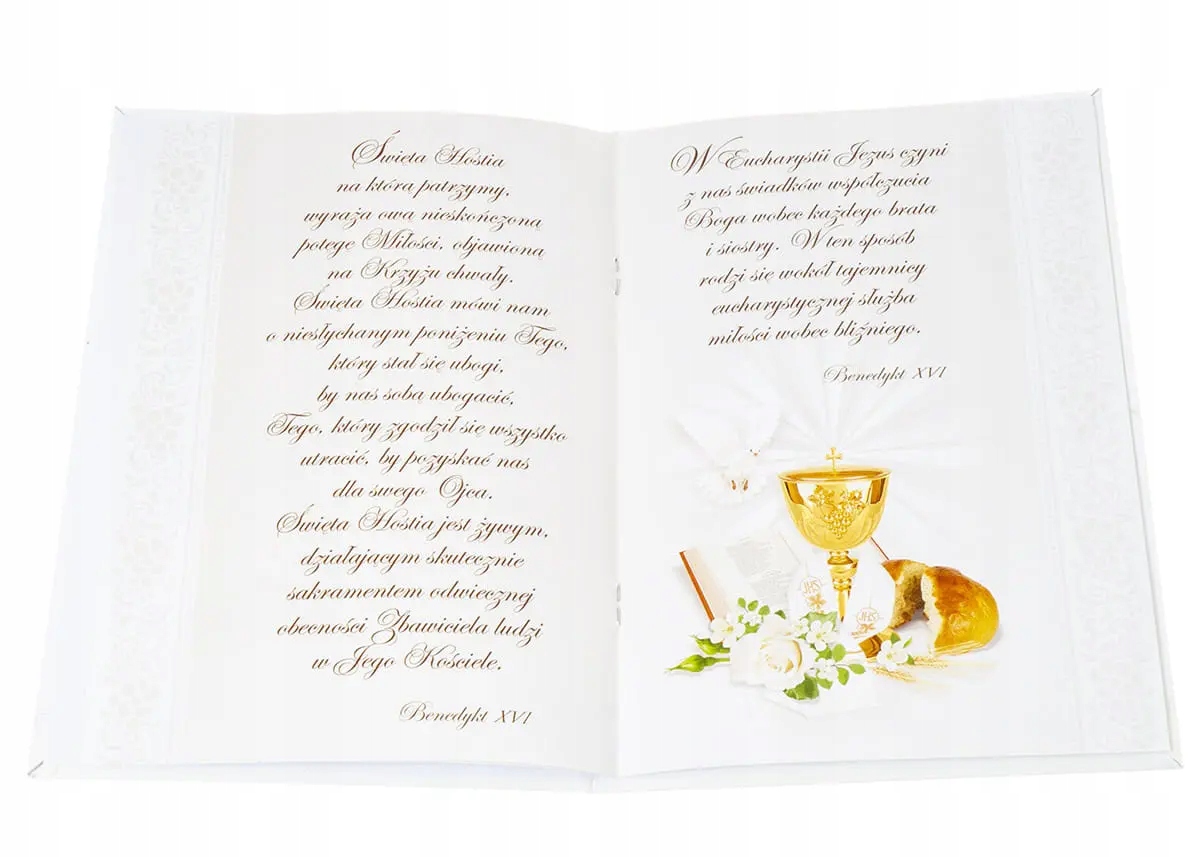 Święta Hostia
na którą patrzymy,
wyraża ową nieskończoną
potęgę Miłości, objawioną
na Krzyżu chwały.
Święta Hostia mówi nam
o niesłychanym poniżeniu Tego,
który stał się ubogi,
by nas sobą ubogacić,
Tego, który zgodził się wszystko
utracić, by pozyskać nas
dla swego Ojca.
Święta Hostia jest żywym,
działającym skutecznie
sakramentem odwiecznej
obecności Zbawiciela ludzi
w Jego Kościele.
Benedykt XVI
W Eucharystii Jezus czyni
z nas świadków współczucia
Boga wobec każdego brata
i siostry. W ten sposób
rodzi się wokół tajemnicy
eucharystycznej służba
miłości wobec bliźniego.
Benedykt XVI
JHS
JHS